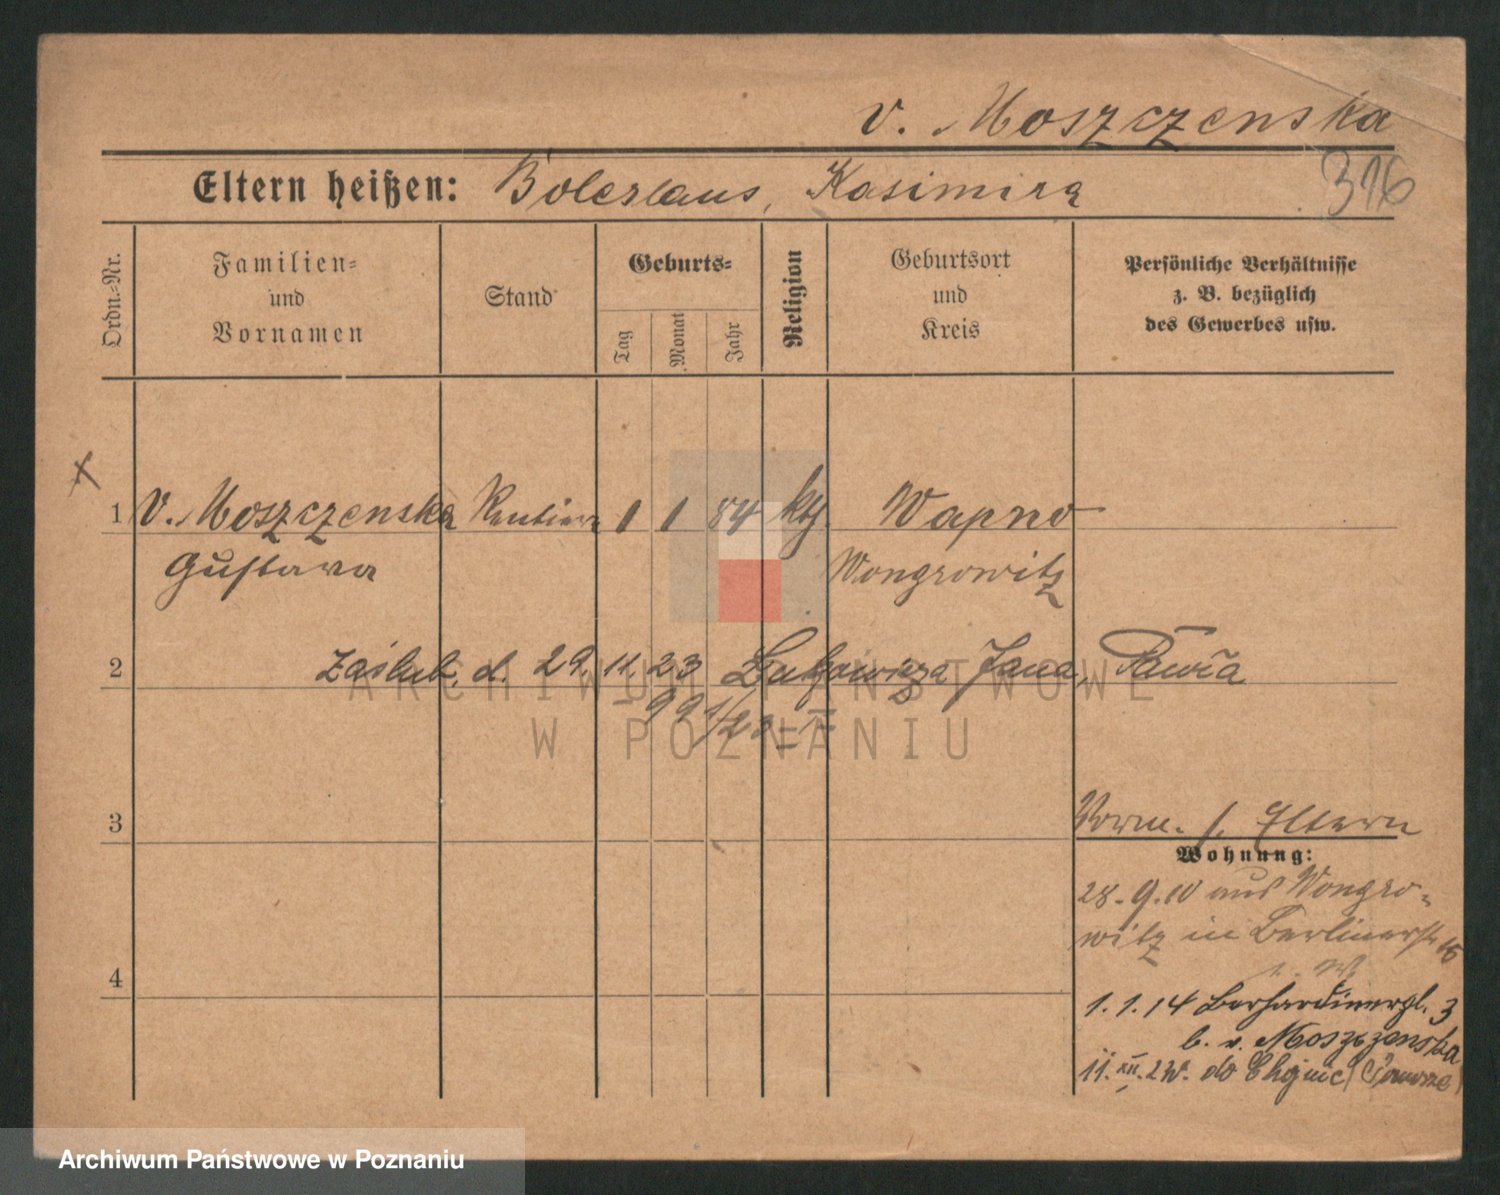 v. Moszczenska
Eltern heißen: Boleslaus, Kasimira
316
Ordn.-Nr.
Familien-
und
Vornamen
Stand
Geburts-
Tag
Monat
Jahr
Religion
Geburtsort
und
Kreis
Persönliche Verhältnisse
z. B. bezüglich
des Gewerbes usw.
1 v. Moszczenska Rentiere 1 1 84 kth. Wapno
Gustava Wongrowitz
2 zaślub. d. 29. 11. 23 Jana, Pawła
991/23
ARCHIWUM PAŃSTWOWE
W POZNANIU
3
Vorm. s. Eltern
Wohnung:
28.9.10 aus Wongro-
witz in Berlinerstr. 16
4
1.1.14 3
b. v. Moszczenska
11.XII. do Chojnic (Pomorze)
Archiwum Państwowe w Poznaniu